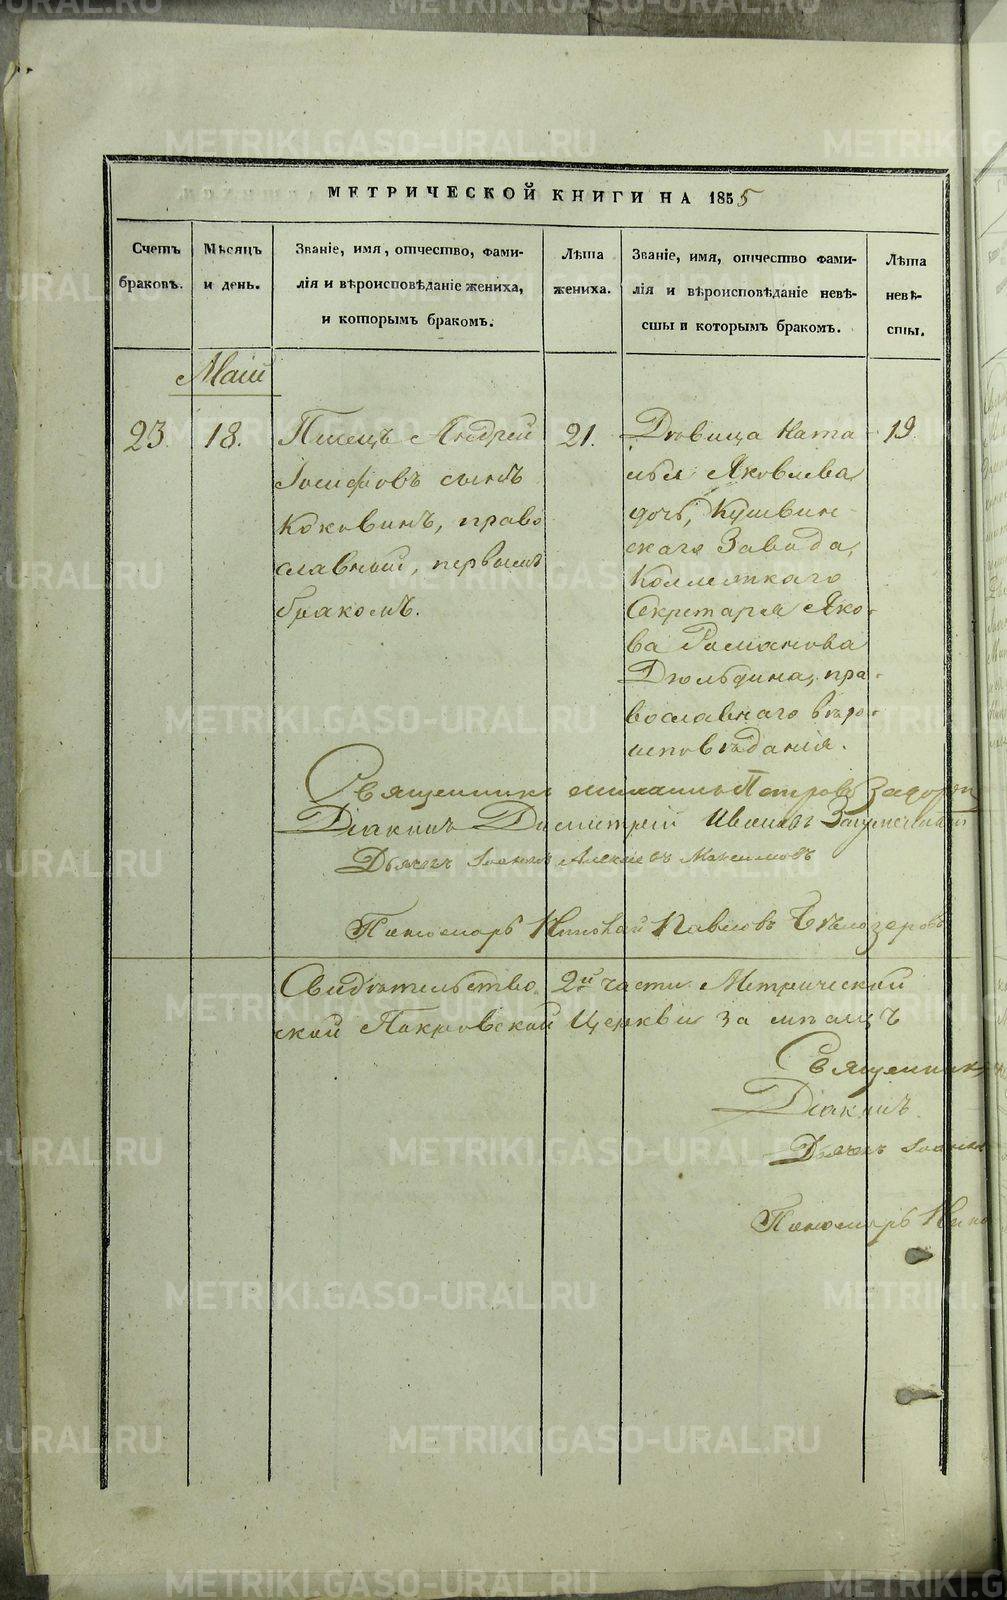 МЕТРИЧЕСКОЙ КНИГИ НА 1855
Счетъ браковъ.
Мѣсяцъ и день.
Званіе, имя, отчество, фами-
лія и вѣроисповѣданіе жениха,
и которымъ бракомъ.
Лѣта жениха.
Званіе, имя, отчество фами-
лія и вѣроисповѣданіе невѣ-
сты и которымъ бракомъ.
Лѣта
невѣ-
сты.
Маій
23.
18.
Писецъ Андрей
Іосифовъ сынъ
Коковинъ, право
славный, первымъ
бракомъ.
21.
Дѣвица Ната
лья Яковлева
дочь, Кушвин-
скаго Завода,
Коллежскаго
Секретаря Яко-
ва Романова
Дюльдина, пра-
вославнаго вѣро-
исповѣданія.
19.
Священникъ Петровъ
Діаконъ Димитрій Ивановъ
Дьячекъ Іоаннъ Алексѣевъ Максимовъ
Пономарь Николай Павловъ Бѣлозеровъ
Свидѣтельство 2й части Метрической
ской Покровской Церкви За мѣсяцъ
Священникъ
Діаконъ
Дьячекъ Іоаннъ
Пономарь Нико
METRIKI.GASO-URAL.RU